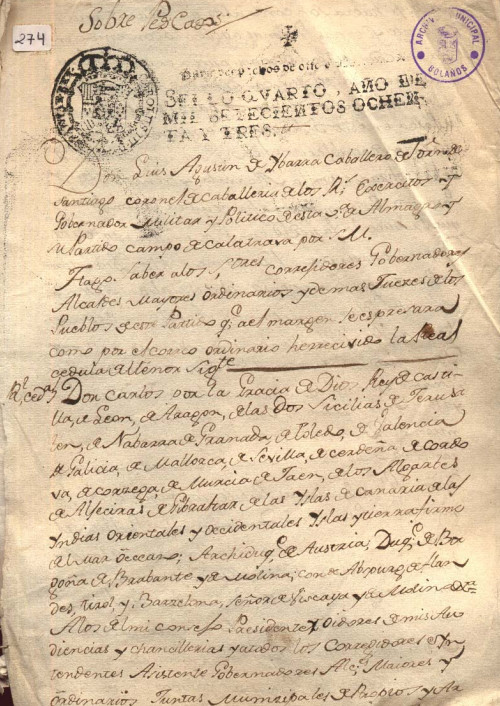 Sobre Pescados
274
ARCHIVO MUNICIPAL
BOLAÑOS
SELLO QVARTO, AÑO DE
MIL SETECIENTOS OCHEN-
TA Y TRES.
Don Luis Agustin de Ybarra Caballero del orn de
Santiago coronel de Caballeria de los Rs. Exercitos y
Gobernador Militar y Politico de esta de Almagro y
su Partido campo de Calatrava por S. M.
Hago saber a los Sres Corregidores Gobernadores
Alcaldes Mayores ordinarios y demas Jueces de los
Pueblos de este Partido qe. a el margen se espresara
como por el correo ordinario he rrecivido la Real
cedula del tenor Sigte
Rl. cedula
Don Carlos por la Gracia de Dios, Rey de Casti-
lla, de Leon, de Aragon, de las dos Sicilias de Jerusa
len, de Nabarra de Granada, de Toledo, de Valencia
de Galicia, de Mallorca, de Sevilla, de cerdeña de cordo
va, de corzega, de Murcia de Jaen, de los Algarbes
de Aljeciras de Gibraltar de las Yslas de Canaria de las
Yndias orientales y occidentales Yslas y tierra firme
del mar occeano; Archiduqe. de Austria; Duqe. de Bor
goña de Brabante y de Milan; conde Abspurg de Flan
des, tirol, y Barzelona, señor de Vizcaya y de Molina
A los del mi consejo Presidente y Oidores de mis Au
diencias y chancillerias y a todos los Corregidores Yn-
tendentes Asistente Gobernadores Alces. Maiores y
ordinarios Juntas Municipales de Propios y Ar